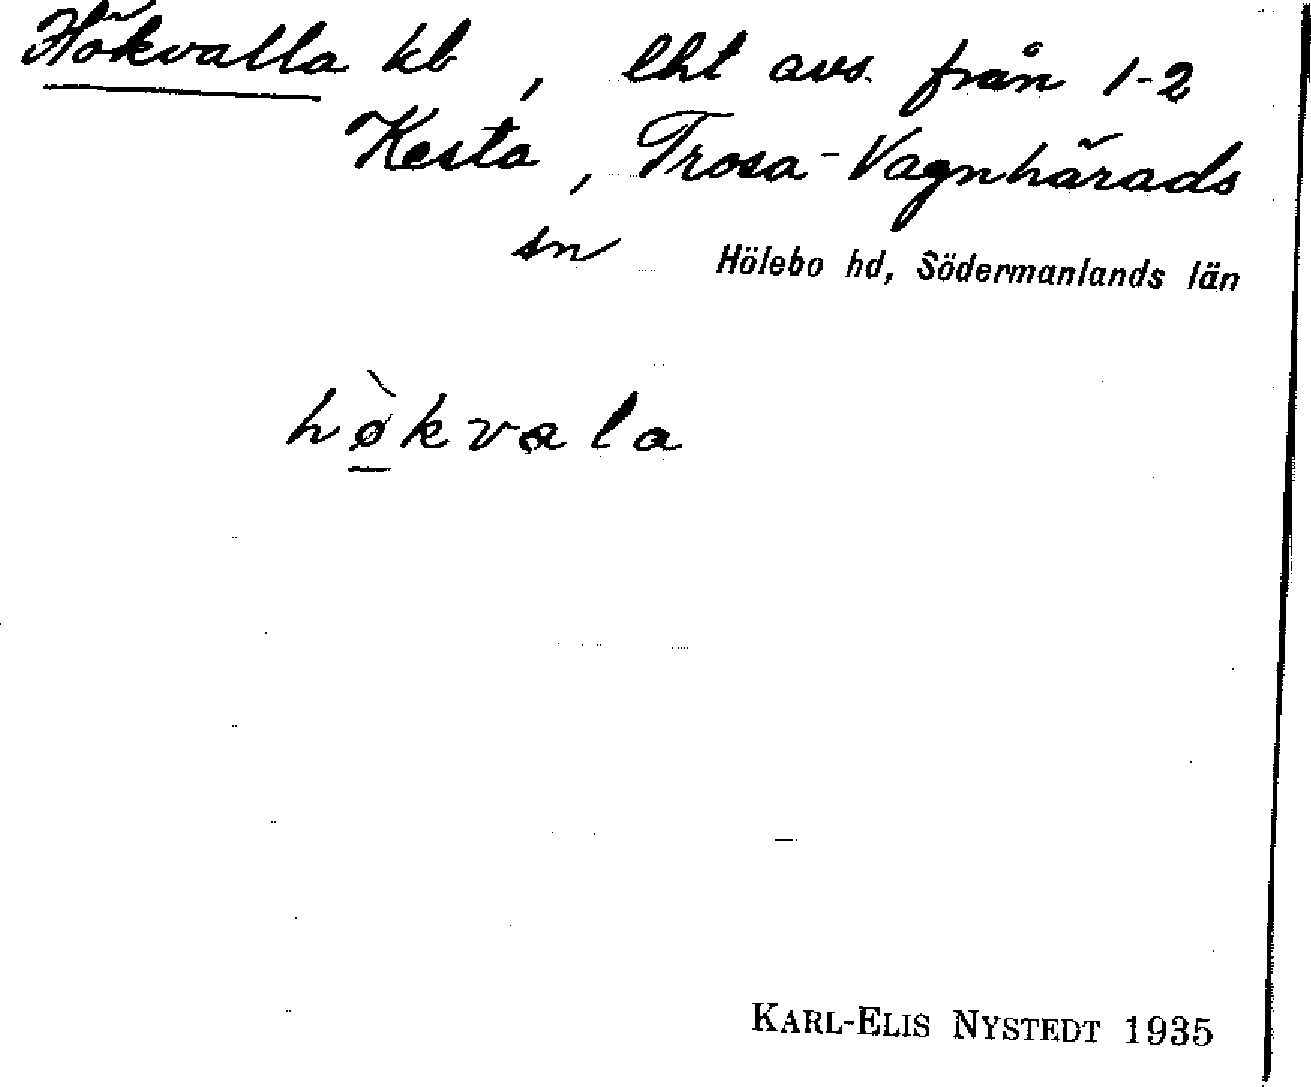 Hökvalla kb, lht avs. från 1-2
Kesta, Trosa-Vagnhärads
sn Hölebo hd, Södermanlands län
hø̀kvala
KARL-ELIS NYSTEDT 1935